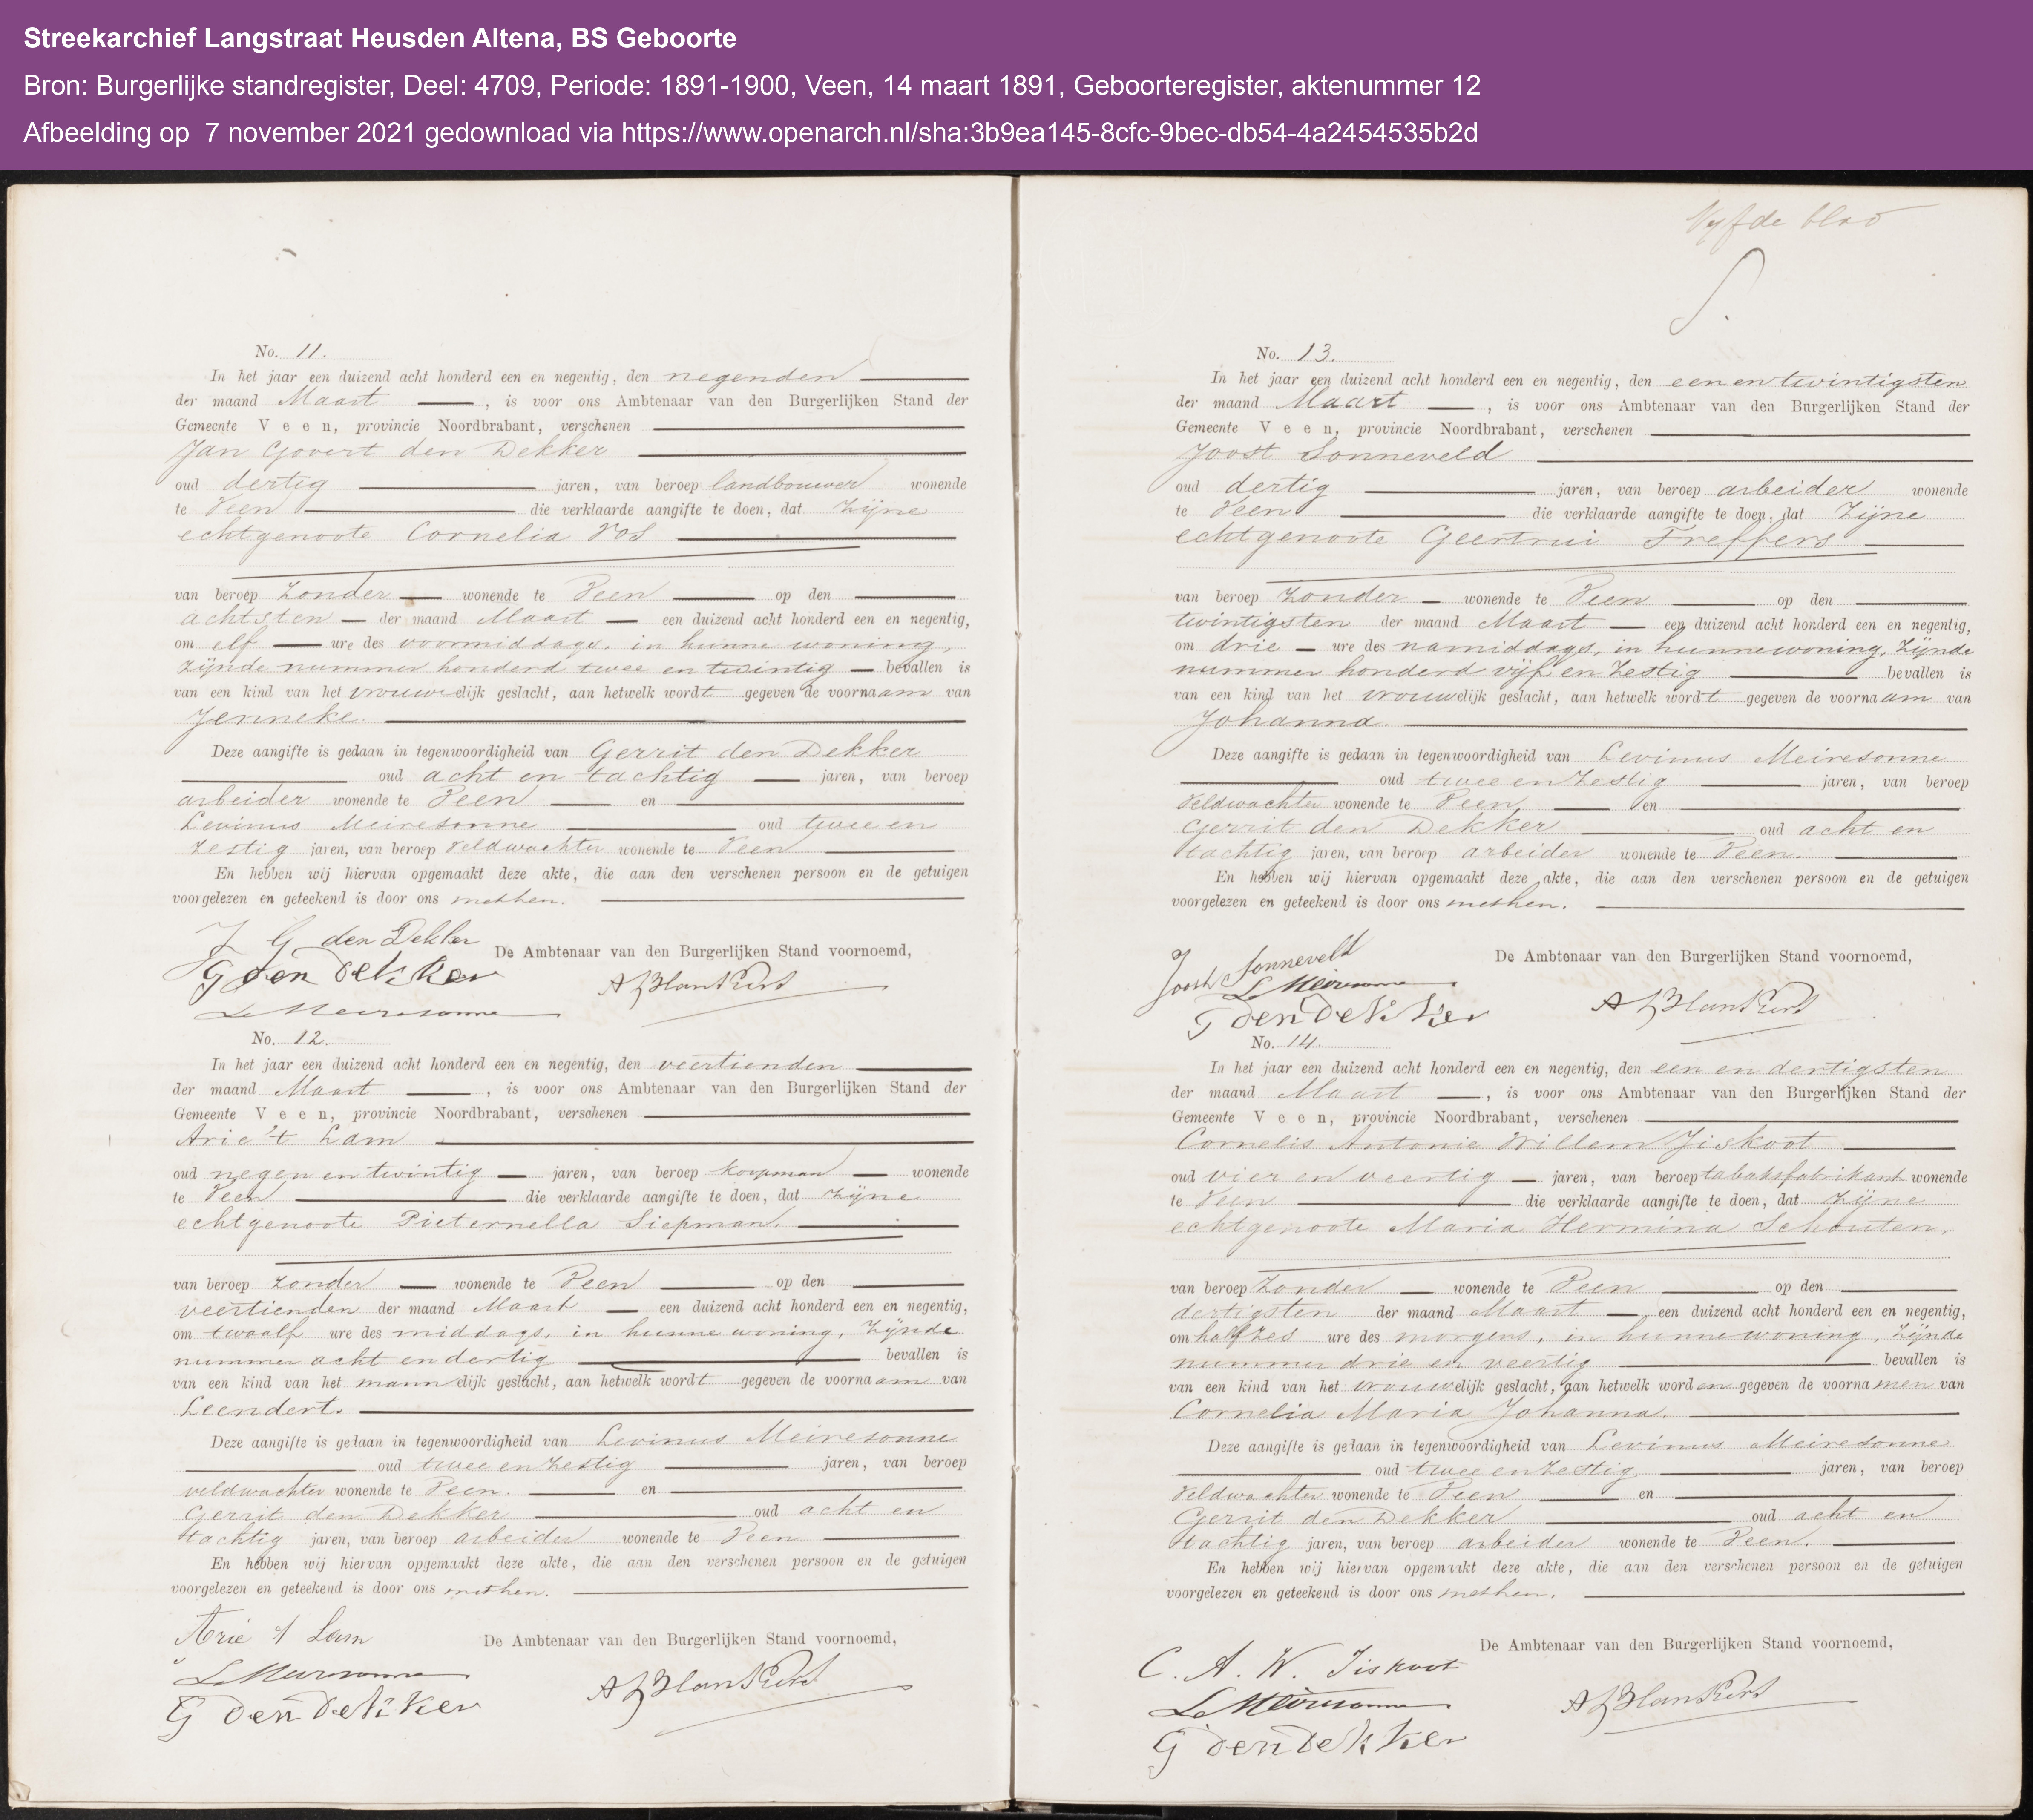 Streekarchief Langstraat Heusden Altena, BS Geboorte
Bron: Burgerlijke standregister, Deel: 4709, Periode: 1891-1900, Veen, 14 maart 1891, Geboorteregister, aktenummer 12
Afbeelding op 7 november 2021 gedownload via https://www.openarch.nl/sha:3b9ea145-8cfc-9bec-db54-4a2454535b2d
No. 11.
In het jaar een duizend acht honderd een en negentig, den negenden
der maand Maart, is voor ons Ambtenaar van den Burgerlijken Stand der
Gemeente Veen, provincie Noordbrabant, verschenen
Jan Govert den Dekker
oud dertig jaren, van beroep landbouwer wonende
te Veen die verklaarde aangifte te doen, dat zijne
echtgenoote Cornelia Vos
van beroep zonder wonende te Veen op den
achtsten der maand Maart een duizend acht honderd een en negentig,
om elf ure des voormiddags, in hunne woning,
zijnde nummer honderd twee en twintig bevallen is
van een kind van het vrouwelijk geslacht, aan hetwelk wordt gegeven de voornaam van
Jenneke.
Deze aangifte is gedaan in tegenwoordigheid van Gerrit den Dekker
oud acht en tachtig jaren, van beroep
arbeider wonende te Veen en
Levinus Meiresonne oud twee en
zestig jaren, van beroep veldwachter wonende te Veen
En hebben wij hiervan opgemaakt deze akte, die aan den verschenen persoon en de getuigen
voorgelezen en geteekend is door ons met hen.
J G den Dekker
De Ambtenaar van den Burgerlijken Stand voornoemd,
G den Dekker
L Meiresonne
No. 12.
In het jaar een duizend acht honderd een en negentig, den veertienden
der maand Maart, is voor ons Ambtenaar van den Burgerlijken Stand der
Gemeente Veen, provincie Noordbrabant, verschenen
Arie 't Lam
oud negen en twintig jaren, van beroep koopman wonende
te Veen die verklaarde aangifte te doen, dat zijne
echtgenoote Pieternella Siepman.
van beroep zonder wonende te Veen op den
veertienden der maand Maart een duizend acht honderd een en negentig,
om twaalf ure des middags, in hunne woning, zijnde
nummer acht en dertig bevallen is
van een kind van het mannelijk geslacht, aan hetwelk wordt gegeven de voornaam van
Leendert.
Deze aangifte is gedaan in tegenwoordigheid van Levinus Meiresonne
oud twee en zestig jaren, van beroep
veldwachter wonende te Veen. en
Gerrit den Dekker oud acht en
tachtig jaren, van beroep arbeider wonende te Veen
En hebben wij hiervan opgemaakt deze akte, die aan den verschenen persoon en de getuigen
voorgelezen en geteekend is door ons met hen.
Arie 't Lam
De Ambtenaar van den Burgerlijken Stand voornoemd,
L Meiresonne
G den Dekker
Vyfde blad
5.
No. 13.
In het jaar een duizend acht honderd een en negentig, den een en twintigsten
der maand Maart, is voor ons Ambtenaar van den Burgerlijken Stand der
Gemeente Veen, provincie Noordbrabant, verschenen
Joost Sonneveld
oud dertig jaren, van beroep arbeider wonende
te Veen die verklaarde aangifte te doen, dat zijne
echtgenoote Geertrui Treffers
van beroep zonder wonende te Veen op den
twintigsten der maand Maart een duizend acht honderd een en negentig,
om drie ure des namiddags, in hunne woning, zijnde
nummer honderd vijf en zestig bevallen is
van een kind van het vrouwelijk geslacht, aan hetwelk wordt gegeven de voornaam van
Johanna.
Deze aangifte is gedaan in tegenwoordigheid van Levinus Meiresonne
oud twee en zestig jaren, van beroep
veldwachter wonende te Veen en
Gerrit den Dekker oud acht en
tachtig jaren, van beroep arbeider wonende te Veen.
En hebben wij hiervan opgemaakt deze akte, die aan den verschenen persoon en de getuigen
voorgelezen en geteekend is door ons met hen.
Joost Sonneveld
De Ambtenaar van den Burgerlijken Stand voornoemd,
L Meiresonne
G den Dekker
No. 14.
In het jaar een duizend acht honderd een en negentig, den een en dertigsten
der maand Maart, is voor ons Ambtenaar van den Burgerlijken Stand der
Gemeente Veen, provincie Noordbrabant, verschenen
Cornelis Antonie Willem Jiskoot
oud vier en veertig jaren, van beroep tabaksfabrikant wonende
te Veen die verklaarde aangifte te doen, dat zijne
echtgenoote Maria Hermina Schouten,
van beroep zonder wonende te Veen op den
dertigsten der maand Maart een duizend acht honderd een en negentig,
om half zes ure des morgens, in hunne woning, zijnde
nummer drie en veertig bevallen is
van een kind van het vrouwelijk geslacht, aan hetwelk worden gegeven de voornamen van
Cornelia Maria Johanna.
Deze aangifte is gedaan in tegenwoordigheid van Levinus Meiresonne
oud twee en zestig jaren, van beroep
veldwachter wonende te Veen en
Gerrit den Dekker oud acht en
tachtig jaren, van beroep arbeider wonende te Veen.
En hebben wij hiervan opgemaakt deze akte, die aan den verschenen persoon en de getuigen
voorgelezen en geteekend is door ons met hen.
De Ambtenaar van den Burgerlijken Stand voornoemd,
C. A. W. Jiskoot
L Meiresonne
G den Dekker